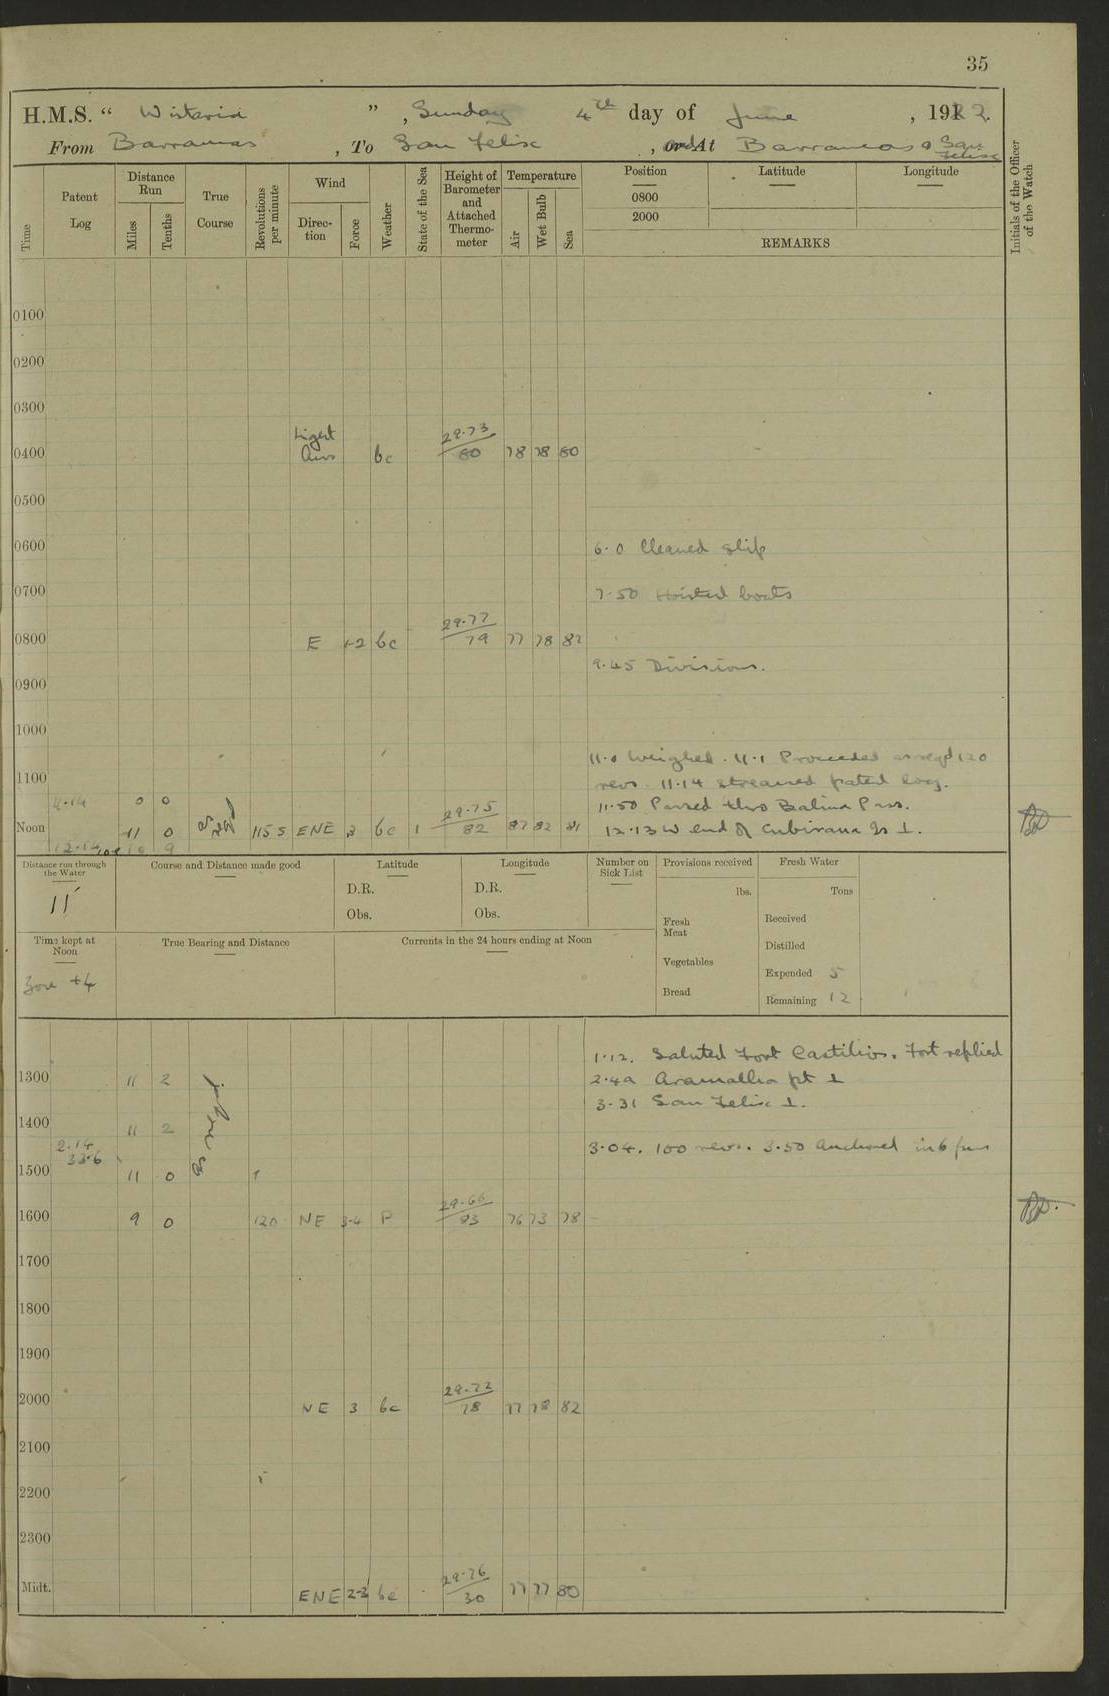 35
H.M.S. “ Wistaria ”, Sunday 4th day of June, 1922.
From Barrancas, To San Felix, and At Barrancas & San Felix
Time
Patent Log
Distance Run
Miles
Tenths
True Course
Revolutions per minute
Wind
Direction
Force
Weather
State of the Sea
Height of Barometer and Attached Thermometer
Temperature
Air
Wet Bulb
Sea
Position
0800
2000
Latitude
Longitude
REMARKS
Initials of the Officer of the Watch
0100
0200
0300
0400 Light Airs bc 29.73/80 78 78 80
0500
0600 6.0 Cleaned ship
0700 7.50 Hoisted boats
0800 E 1-2 bc 29.77/79 77 78 82
9.45 Divisions.
0900
1000
11.0 Weighed. 11.1 Proceeded as reqd 120
1100 revs. 11.14 streamed patent log.
0 0 11.50 Passed thro Pass.
Noon 11 0 as reqd 115.5 ENE 3 bc 1 29.75/82 87 82 81 12.13 W end of Is ⊥.
12.14
Distance run through the Water
11'
Course and Distance made good
Latitude
D.R.
Obs.
Longitude
D.R.
Obs.
Number on Sick List
Provisions received
lbs.
Fresh Meat
Vegetables
Bread
Fresh Water
Tons
Received
Distilled
Expended 5
Remaining 12
Time kept at Noon
Zone +4
True Bearing and Distance
Currents in the 24 hours ending at Noon
1.12. Saluted Fort Castilios. Fort replied
1300 11 2 2.49 pt ⊥
3.31 San Felix ⊥.
1400 11 2
2.14 33.6 3.04. 100 revs. 3.50 Anchored in 6 fms
1500 11 0
1600 9 0 120 NE 3-4 P 29.66/83 76 73 78
1700
1800
1900
2000 NE 3 bc 29.72/78 77 78 82
2100
2200
2300
Midt. ENE 2-3 bc 29.76/80 77 77 80